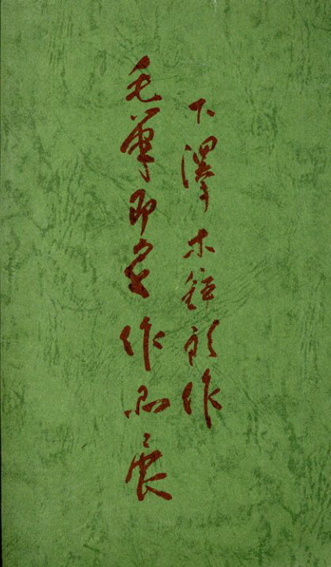 下澤木鉢郎作
毛筆 作品展